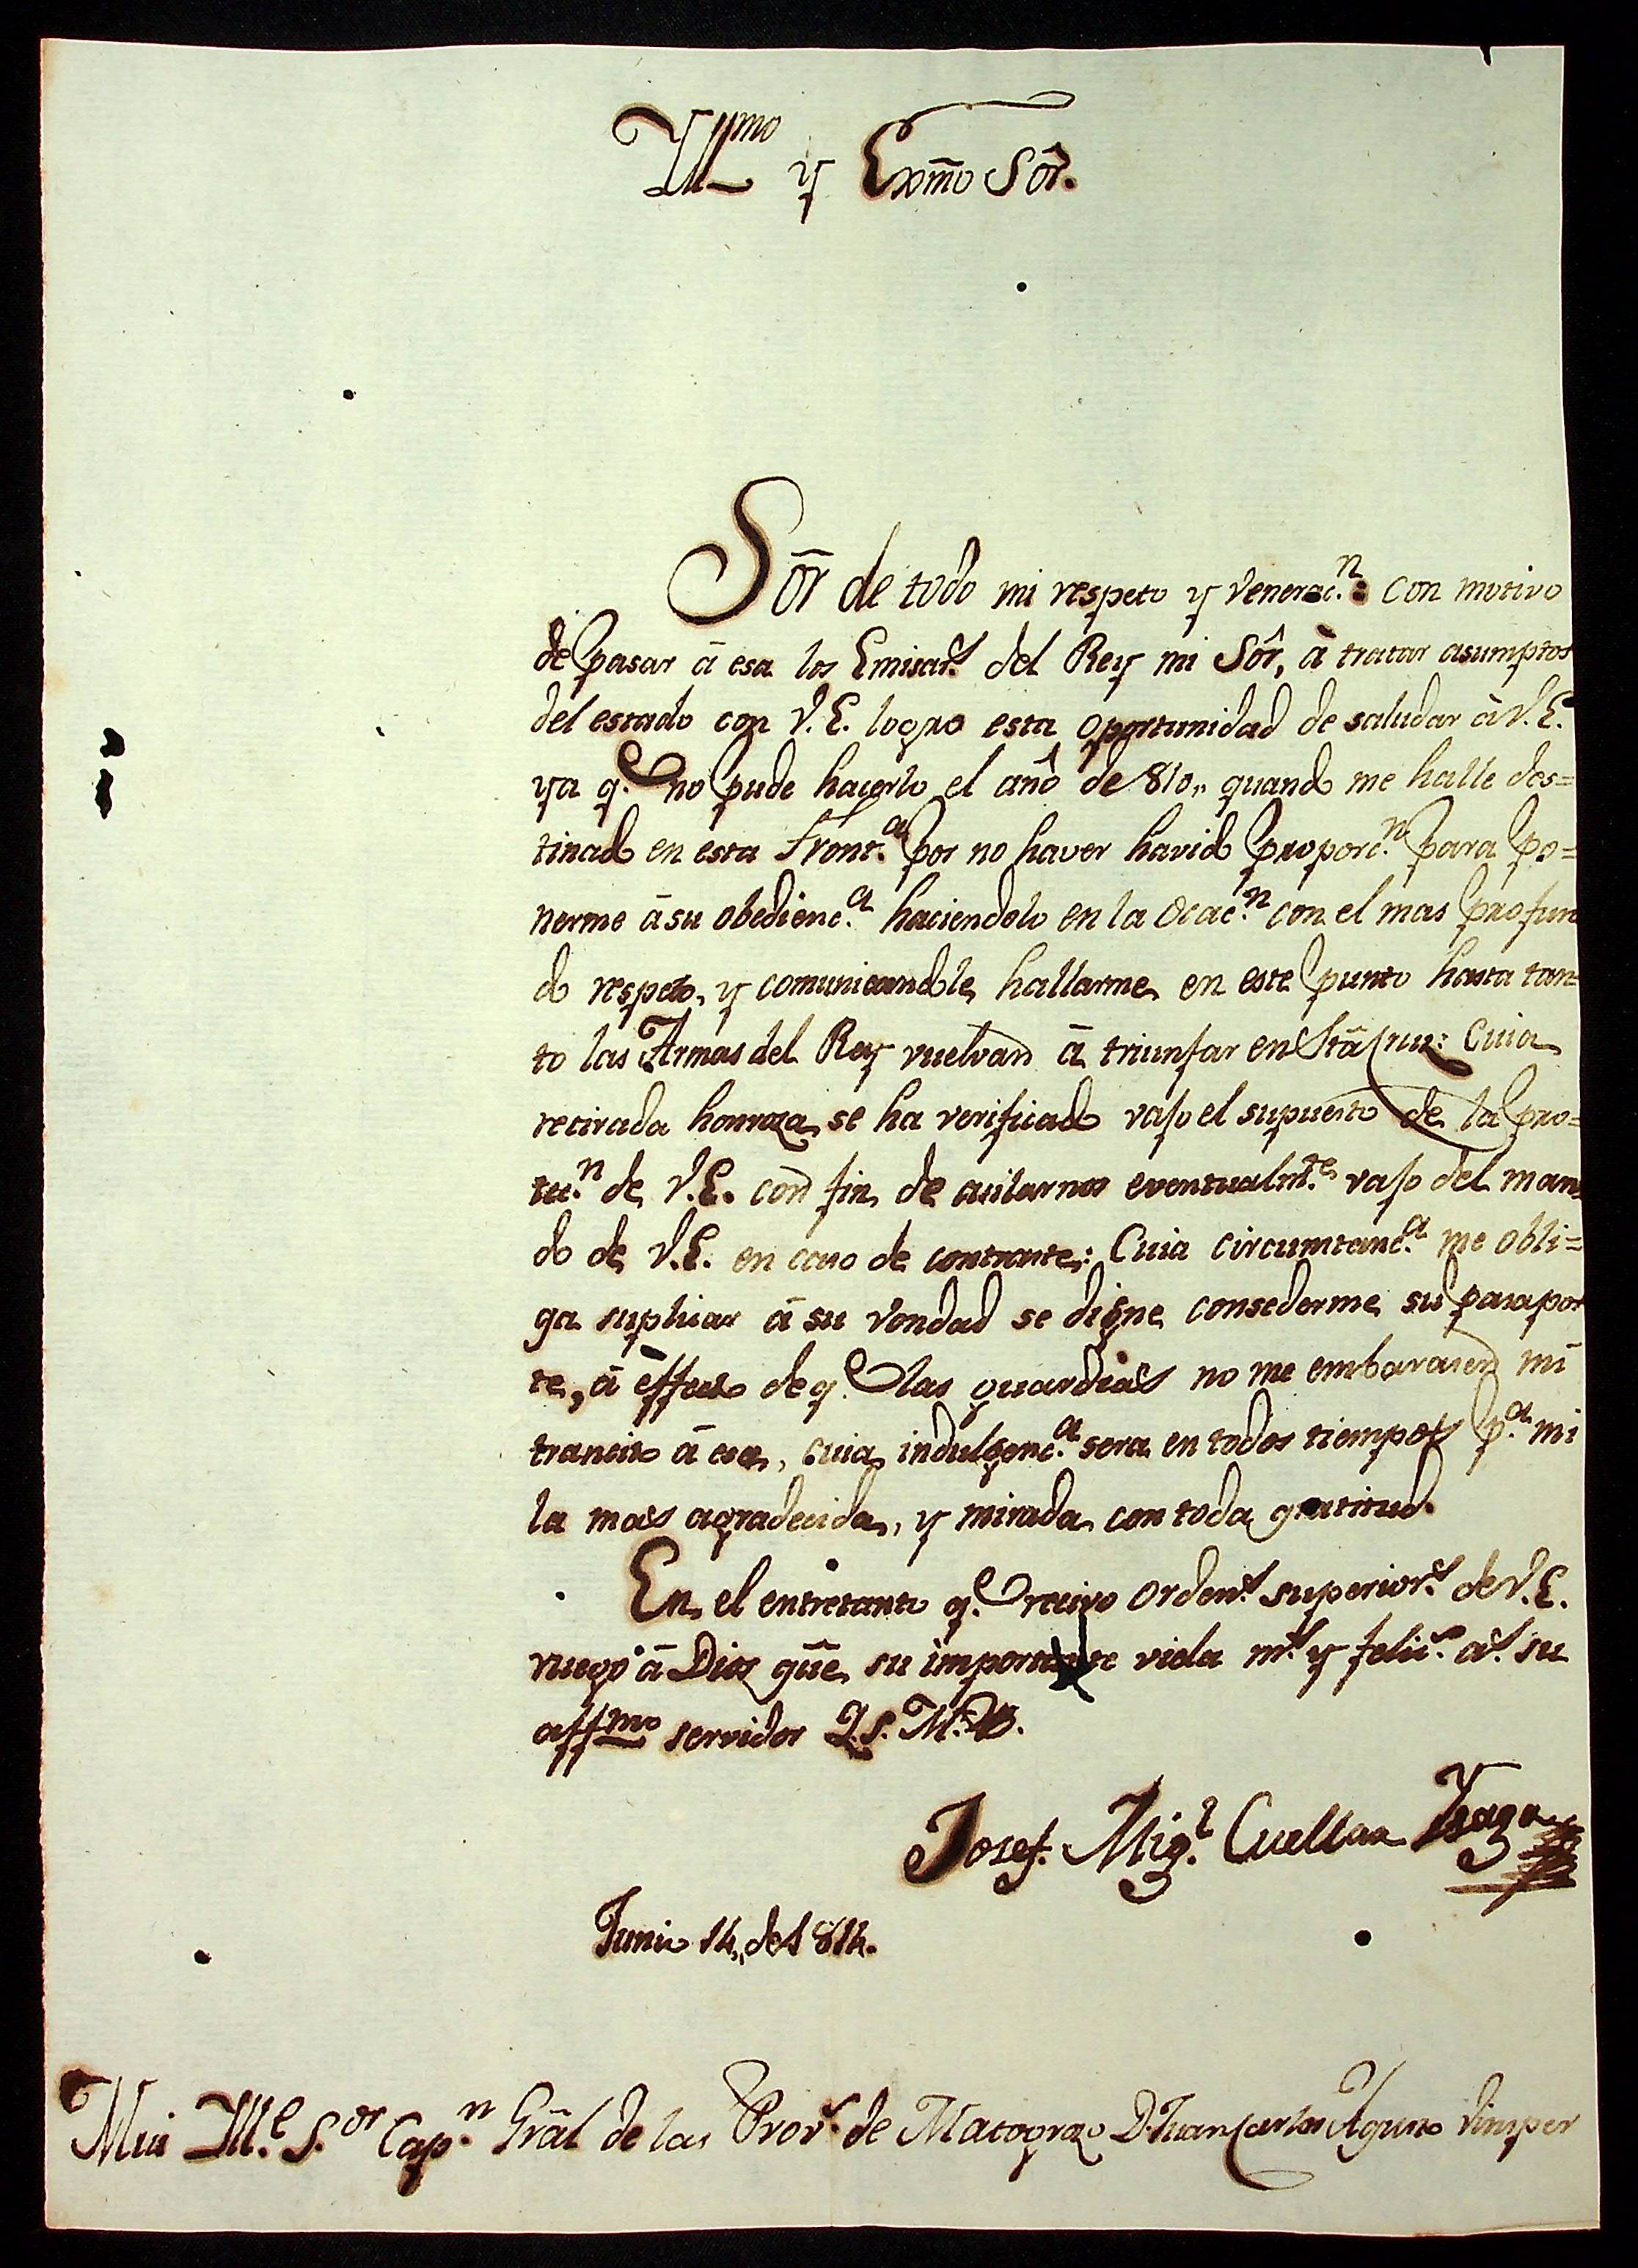 Yll.mo y Exmô Sôr.
Sôr de todo mi respeto y Venerac.n: con motivo
de pasar â esa los Emisar.s del Rey mi Sôr, â tratar asumptos
del estado con V.E. logro esta oportunidad de saludar â V.E.
ya q.e no pude hacerlo el año de 810,, quando me halle des=
tinado en esta Front.a por no haver havido proporc.n para po=
nerme â su obedienc.a haciendolo en la Ocac.n con el mas profun
do respeto, y comunicandole hallarme en este punto hasta tan=
to las Armas del Rey vuelvan â triunfar en Stâ Cruz: Cuia
retirada honroza se ha verificado vajo el supuesto de la pro=
tec.n de V.E. con fin de auilarnos eventualm.te vajo del man
do de V.E. en caso de contraste: Cuia circumstanc.a me obli=
ga suplicar â su vondad se digne consederme su pasapor
te, â effecto de q.e las guardias no me embarasen mi
trancito â esa, cuia indulgenc.a sera en todos tiempos p.a mi
la mas agradecida, y mirada con toda gratitud.
En el entretanto q.e recivo orden.s superior.s de V.E.
ruego â Dios güe su importante vida m.s y felic.s a.s su
aff.mo servidor Q.S.M.B.
Josef Mig.l Cuellar
Junio 14,, de 1814.
Mui Ill.e S.or Cap.n Grâl de las Prov.s de Matogrozo D. Juan Carlos Aguto